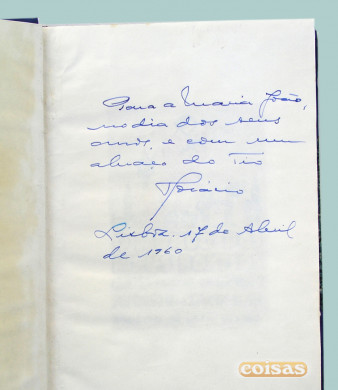 Para a Maria João,
no dia dos seus
anos, e com um
abraço do Tio
Horácio
Lisboa. 17 de Abril
de 1960
coisas